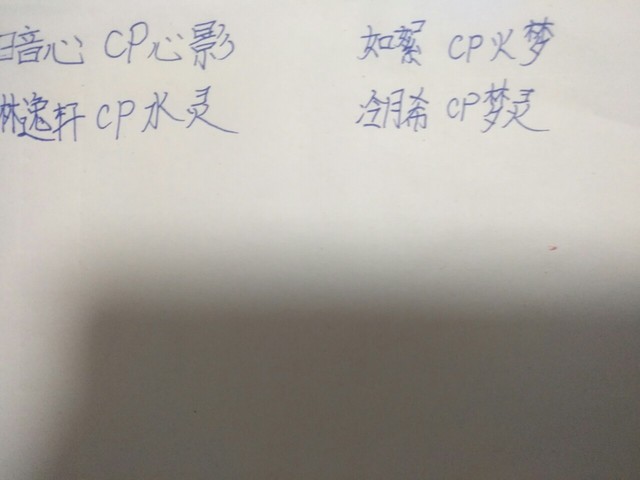 暗心 CP心影 如絮 CP火梦
林逸轩 CP水灵 冷月希 CP梦灵